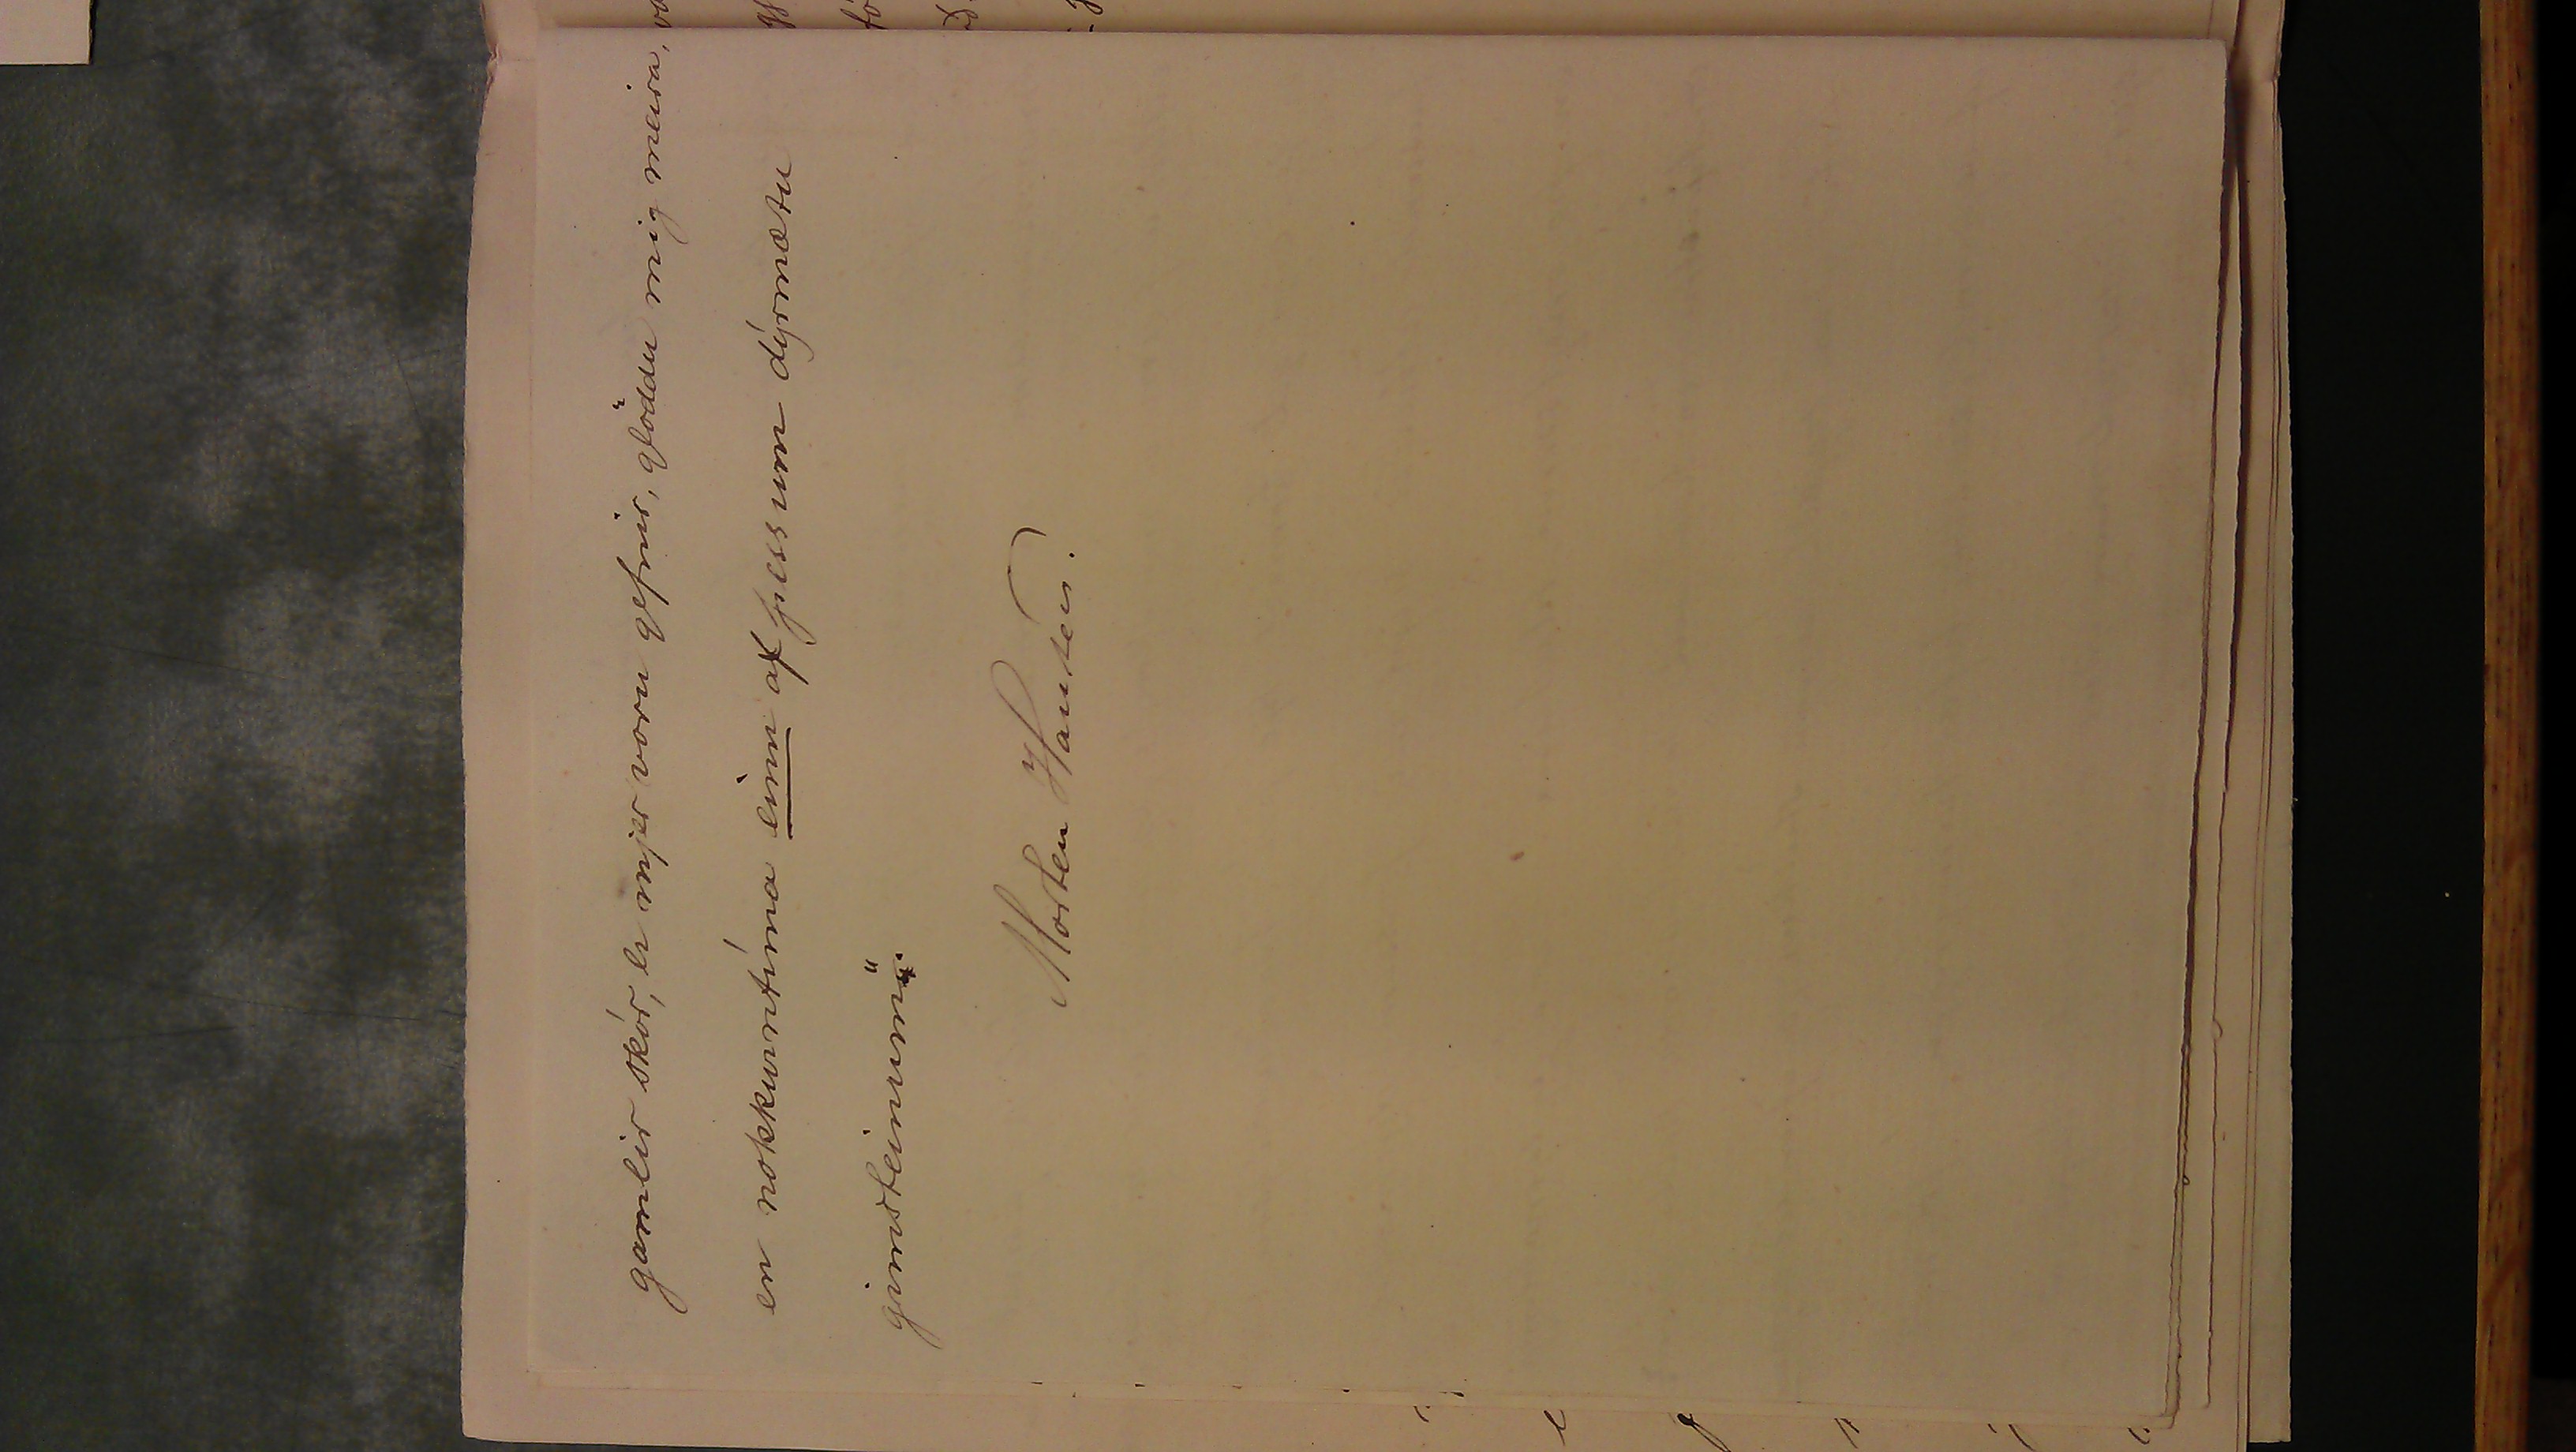 gamlir skór, er mjer voru gefnir, glöddu mig meira,
en nokkurntíma einn af þessum dýrmætu
gimsteinum".
Morten Hansen.